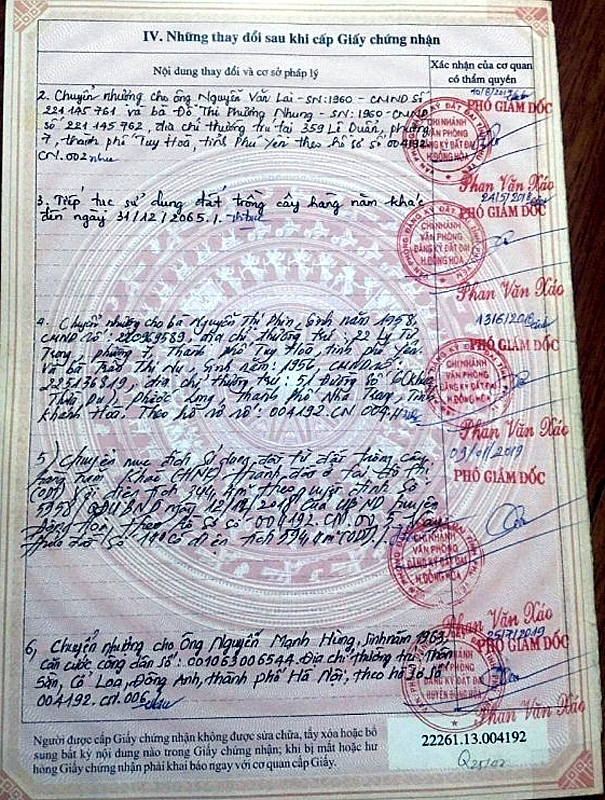 IV. Những thay đổi sau khi cấp Giấy chứng nhận
Nội dung thay đổi và cơ sở pháp lý
Xác nhận của cơ quan
có thẩm quyền
2. Chuyển nhượng cho ông Nguyễn Văn Lai - SN: 1960 - CMND số
221145761 và bà Đỗ Thị Phương Nhung - SN: 1960 - CMND
số 221145762, địa chỉ thường trú tại 359 Lê Duẩn, phường
7, thành phố Tuy Hoà, tỉnh Phú Yên theo hồ sơ số 004192.
CN.002
10/8/2017
PHÓ GIÁM ĐỐC
CHI NHÁNH
VĂN PHÒNG
ĐĂNG KÝ ĐẤT ĐAI
H.ĐÔNG HÒA
Phan Văn Xáo
3. Tiếp tục sử dụng đất trồng cây hàng năm khác
đến ngày 31/12/2065./.
24/5/2018
PHÓ GIÁM ĐỐC
CHI NHÁNH
VĂN PHÒNG
ĐĂNG KÝ ĐẤT ĐAI
H.ĐÔNG HÒA
Phan Văn Xáo
4. Chuyển nhượng cho bà Nguyễn Thị Phin, sinh năm 1958,
CMND số: 220969589, địa chỉ thường trú: 22 Lý Tự
Trọng, phường 7, Thành phố Tuy Hoà, tỉnh phú Yên
Và bà Trần Thị Nu, sinh năm: 1956, CMND số:
225136819, địa chỉ thường trú: 51 đường số
Phước Long, Thành phố Nha Trang, Tỉnh
Khánh Hoà. Theo hồ sơ số: 004192.CN.004
13/6/2018
PHÓ GIÁM ĐỐC
CHI NHÁNH
VĂN PHÒNG
ĐĂNG KÝ ĐẤT ĐAI
H.ĐÔNG HÒA
Phan Văn Xáo
5) Chuyển mục đích sử dụng đất từ đất trồng cây
hàng năm khác (HNK) thành đất ở tại đô thị
(ODT) với diện tích 344,4m² theo quyết định số
5958/QĐ-UBND ngày 12/2018 của UBND huyện
Đông Hòa, theo hồ sơ số: 004192.CN.005
thửa đất số có diện tích ODT)./.
09/01/2019
PHÓ GIÁM ĐỐC
CHI NHÁNH
VĂN PHÒNG
ĐĂNG KÝ ĐẤT ĐAI
H.ĐÔNG HÒA
Phan Văn Xáo
6, Chuyển nhượng cho Ông Nguyễn Mạnh Hùng, sinh năm 1963,
căn cước công dân số: 001063006544. Địa chỉ thường trú: Thôn
Sằn, Cổ Loa, Đông Anh, thành phố Hà Nội, theo hồ sơ số
004192.CN.006./.
25/7/2019
PHÓ GIÁM ĐỐC
CHI NHÁNH
VĂN PHÒNG
ĐĂNG KÝ ĐẤT ĐAI
HUYỆN ĐÔNG HÒA
Phan Văn Xáo
Người được cấp Giấy chứng nhận không được sửa chữa, tẩy xóa hoặc bổ
sung bất kỳ nội dung nào trong Giấy chứng nhận; khi bị mất hoặc hư
hỏng Giấy chứng nhận phải khai báo ngay với cơ quan cấp Giấy.
22261.13.004192